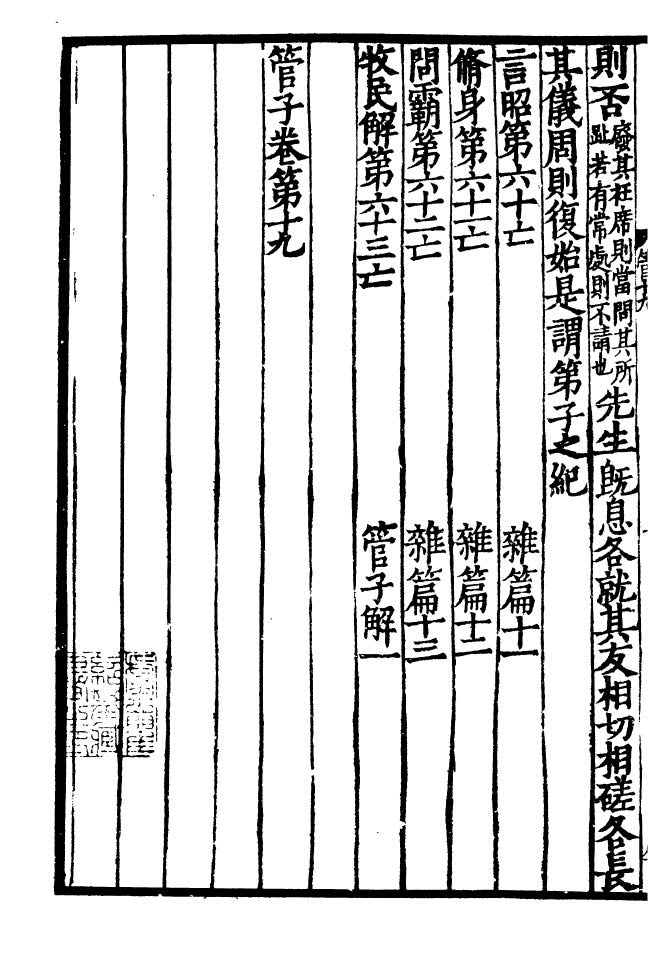 則否廢其衽席則當問其所趾若有常處則不請也先生既息各就其友相切相磋各長
其儀周則復始是謂第子之紀
言昭第六十亡 雜篇十一
脩身第六十一亡 雜篇十二
問霸第六十二亡 雜篇十三
牧民解第六十三亡 管子解一
管子卷第十九